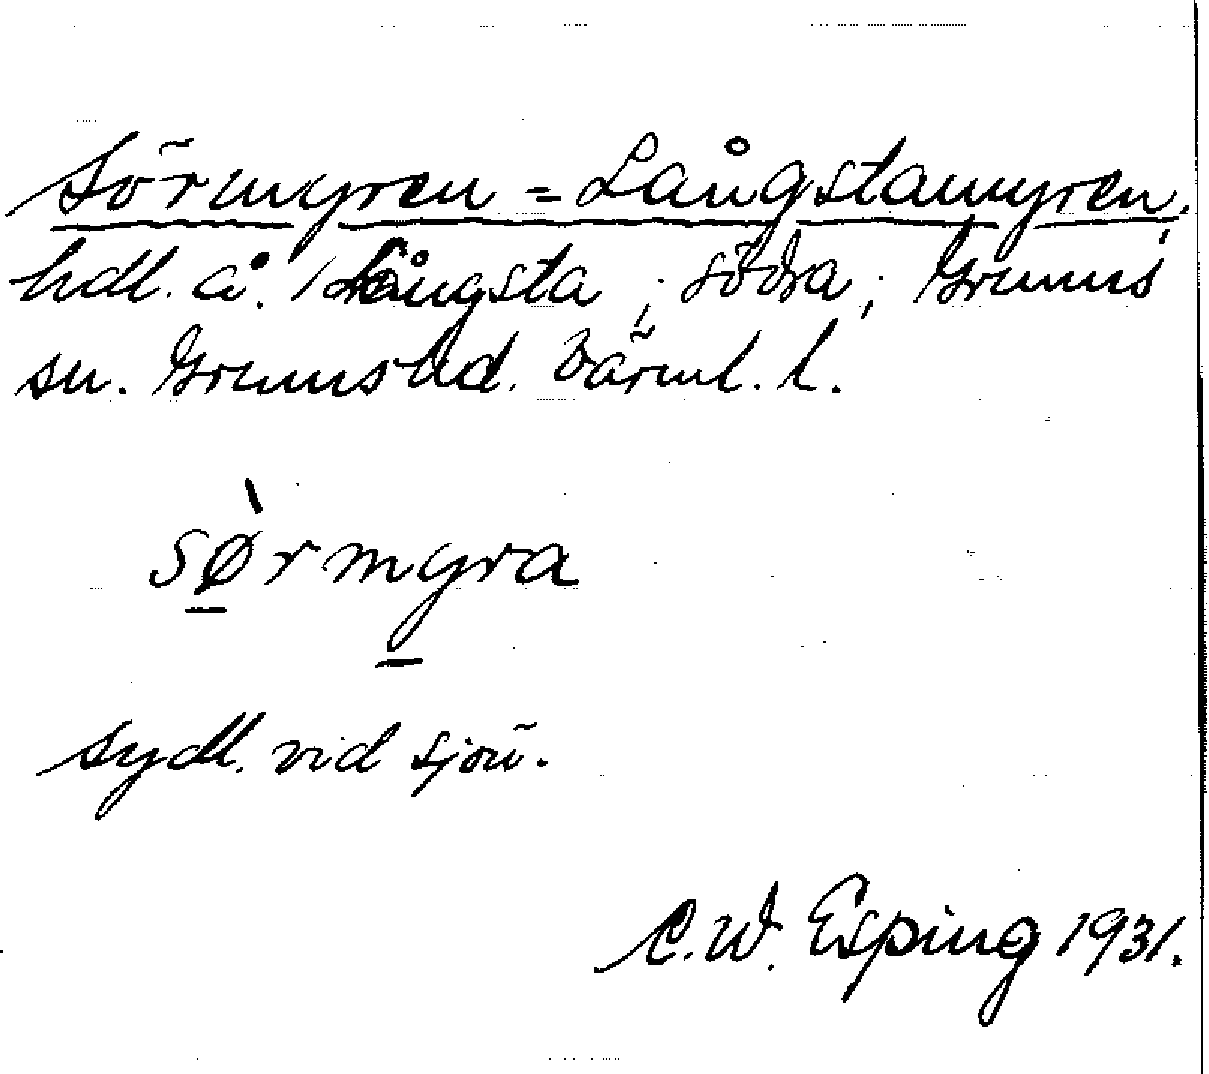 Sörmyren = Långstamyren,
hdl. å. Långsta, södra, Grums
sn. Grums hd. Värml. l.
sørmyra
sydl. vid sjön.
C. W. Esping 1931.